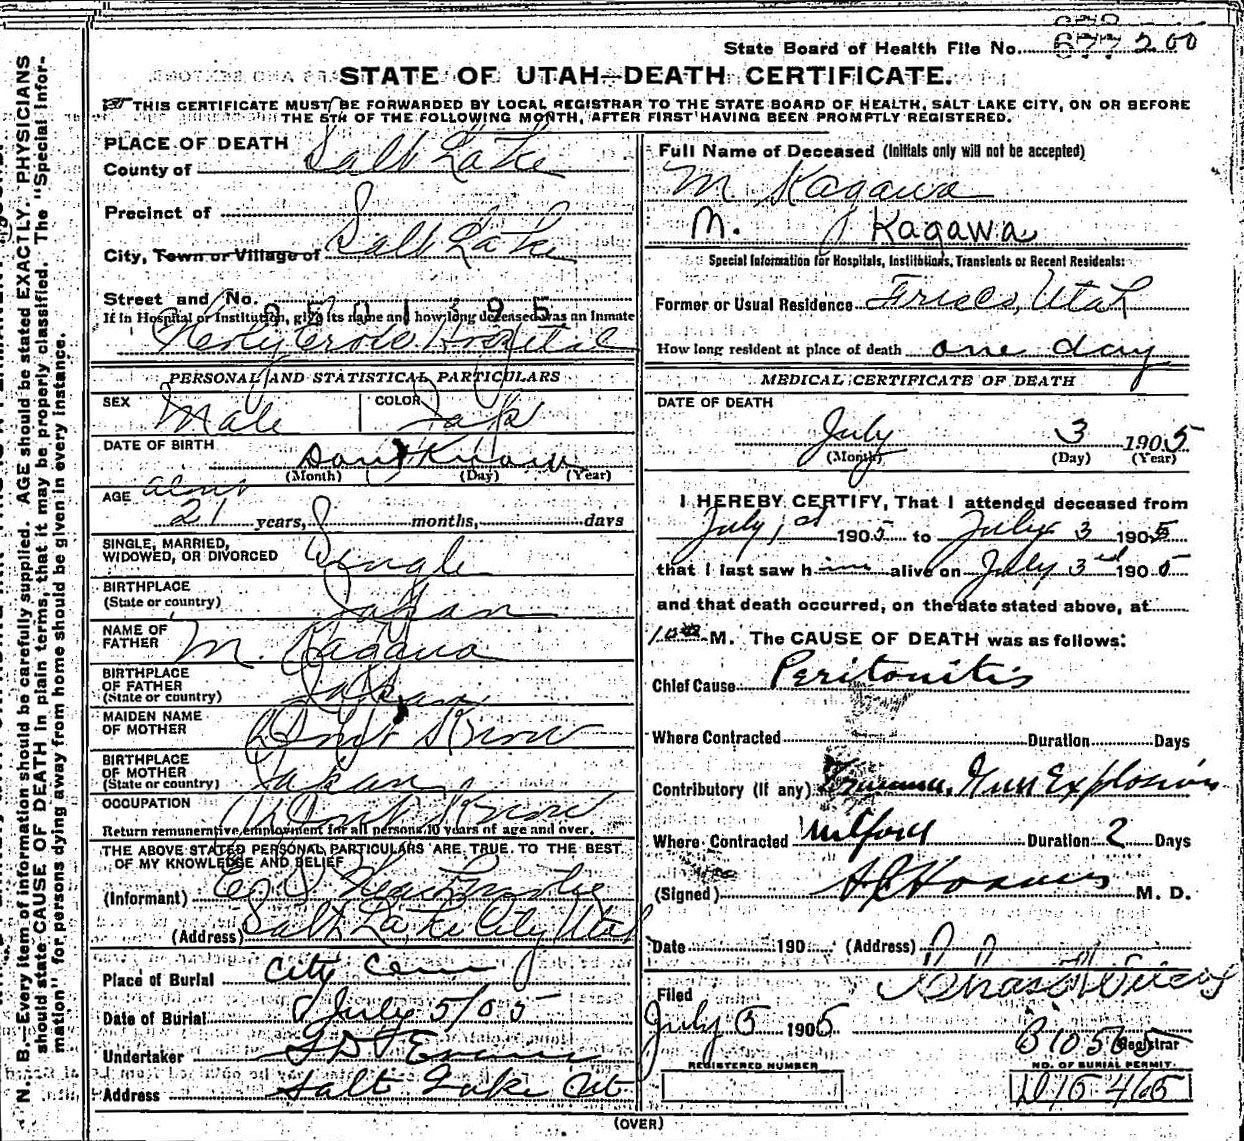 State Board of Health File No. 677 200
STATE OF UTAH—DEATH CERTIFICATE.
THIS CERTIFICATE MUST BE FORWARDED BY LOCAL REGISTRAR TO THE STATE BOARD OF HEALTH, SALT LAKE CITY, ON OR BEFORE
THE 5TH OF THE FOLLOWING MONTH, AFTER FIRST HAVING BEEN PROMPTLY REGISTERED.
PLACE OF DEATH
County of Salt Lake
Precinct of
City, Town or Village of Salt Lake
Street and No.
0501395
If in Hospital or Institution, give its name and how long deceased was an Inmate
Holy Cross Hospital
PERSONAL AND STATISTICAL PARTICULARS
SEX Male COLOR Jap
DATE OF BIRTH Dont Know
(Month) (Day) (Year)
AGE about
21 years, months, days
SINGLE, MARRIED,
WIDOWED, OR DIVORCED Single
BIRTHPLACE
(State or country) Japan
NAME OF
FATHER M. Kagawa
BIRTHPLACE
OF FATHER
(State or country) Japan
MAIDEN NAME
OF MOTHER Dont Know
BIRTHPLACE
OF MOTHER
(State or country) Japan
OCCUPATION Dont Know
Return remunerative employment for all persons 10 years of age and over.
THE ABOVE STATED PERSONAL PARTICULARS ARE TRUE TO THE BEST
OF MY KNOWLEDGE AND BELIEF
(Informant)
(Address) Salt Lake City Utah
Place of Burial City Cem
Date of Burial July 5/05
Undertaker Evans
Address Salt Lake Ut
Full Name of Deceased (Initials only will not be accepted)
M Kagawa
M. Kagawa
Special Information for Hospitals, Institutions, Transients or Recent Residents:
Former or Usual Residence Frisco, Utah
How long resident at place of death one day
MEDICAL CERTIFICATE OF DEATH
DATE OF DEATH
July 3 1905
(Month) (Day) (Year)
I HEREBY CERTIFY, That I attended deceased from
July 1st 1905 to July 3 1905
that I last saw him alive on July 3rd 1905
and that death occurred, on the date stated above, at
M. The CAUSE OF DEATH was as follows:
Chief Cause Peritonitis
Where Contracted Duration Days
Contributory (If any) Trauma, Gun Explosion
Where Contracted Milford Duration 2 Days
(Signed) M. D.
Date 190 (Address)
Filed
July 5 1905
Registrar
REGISTERED NUMBER
NO. OF BURIAL PERMIT
(OVER)
N. B.—Every item of information should be carefully supplied. AGE should be stated EXACTLY. PHYSICIANS
should state CAUSE OF DEATH in plain terms, that it may be properly classified. The "Special Infor-
mation" for persons dying away from home should be given in every instance.